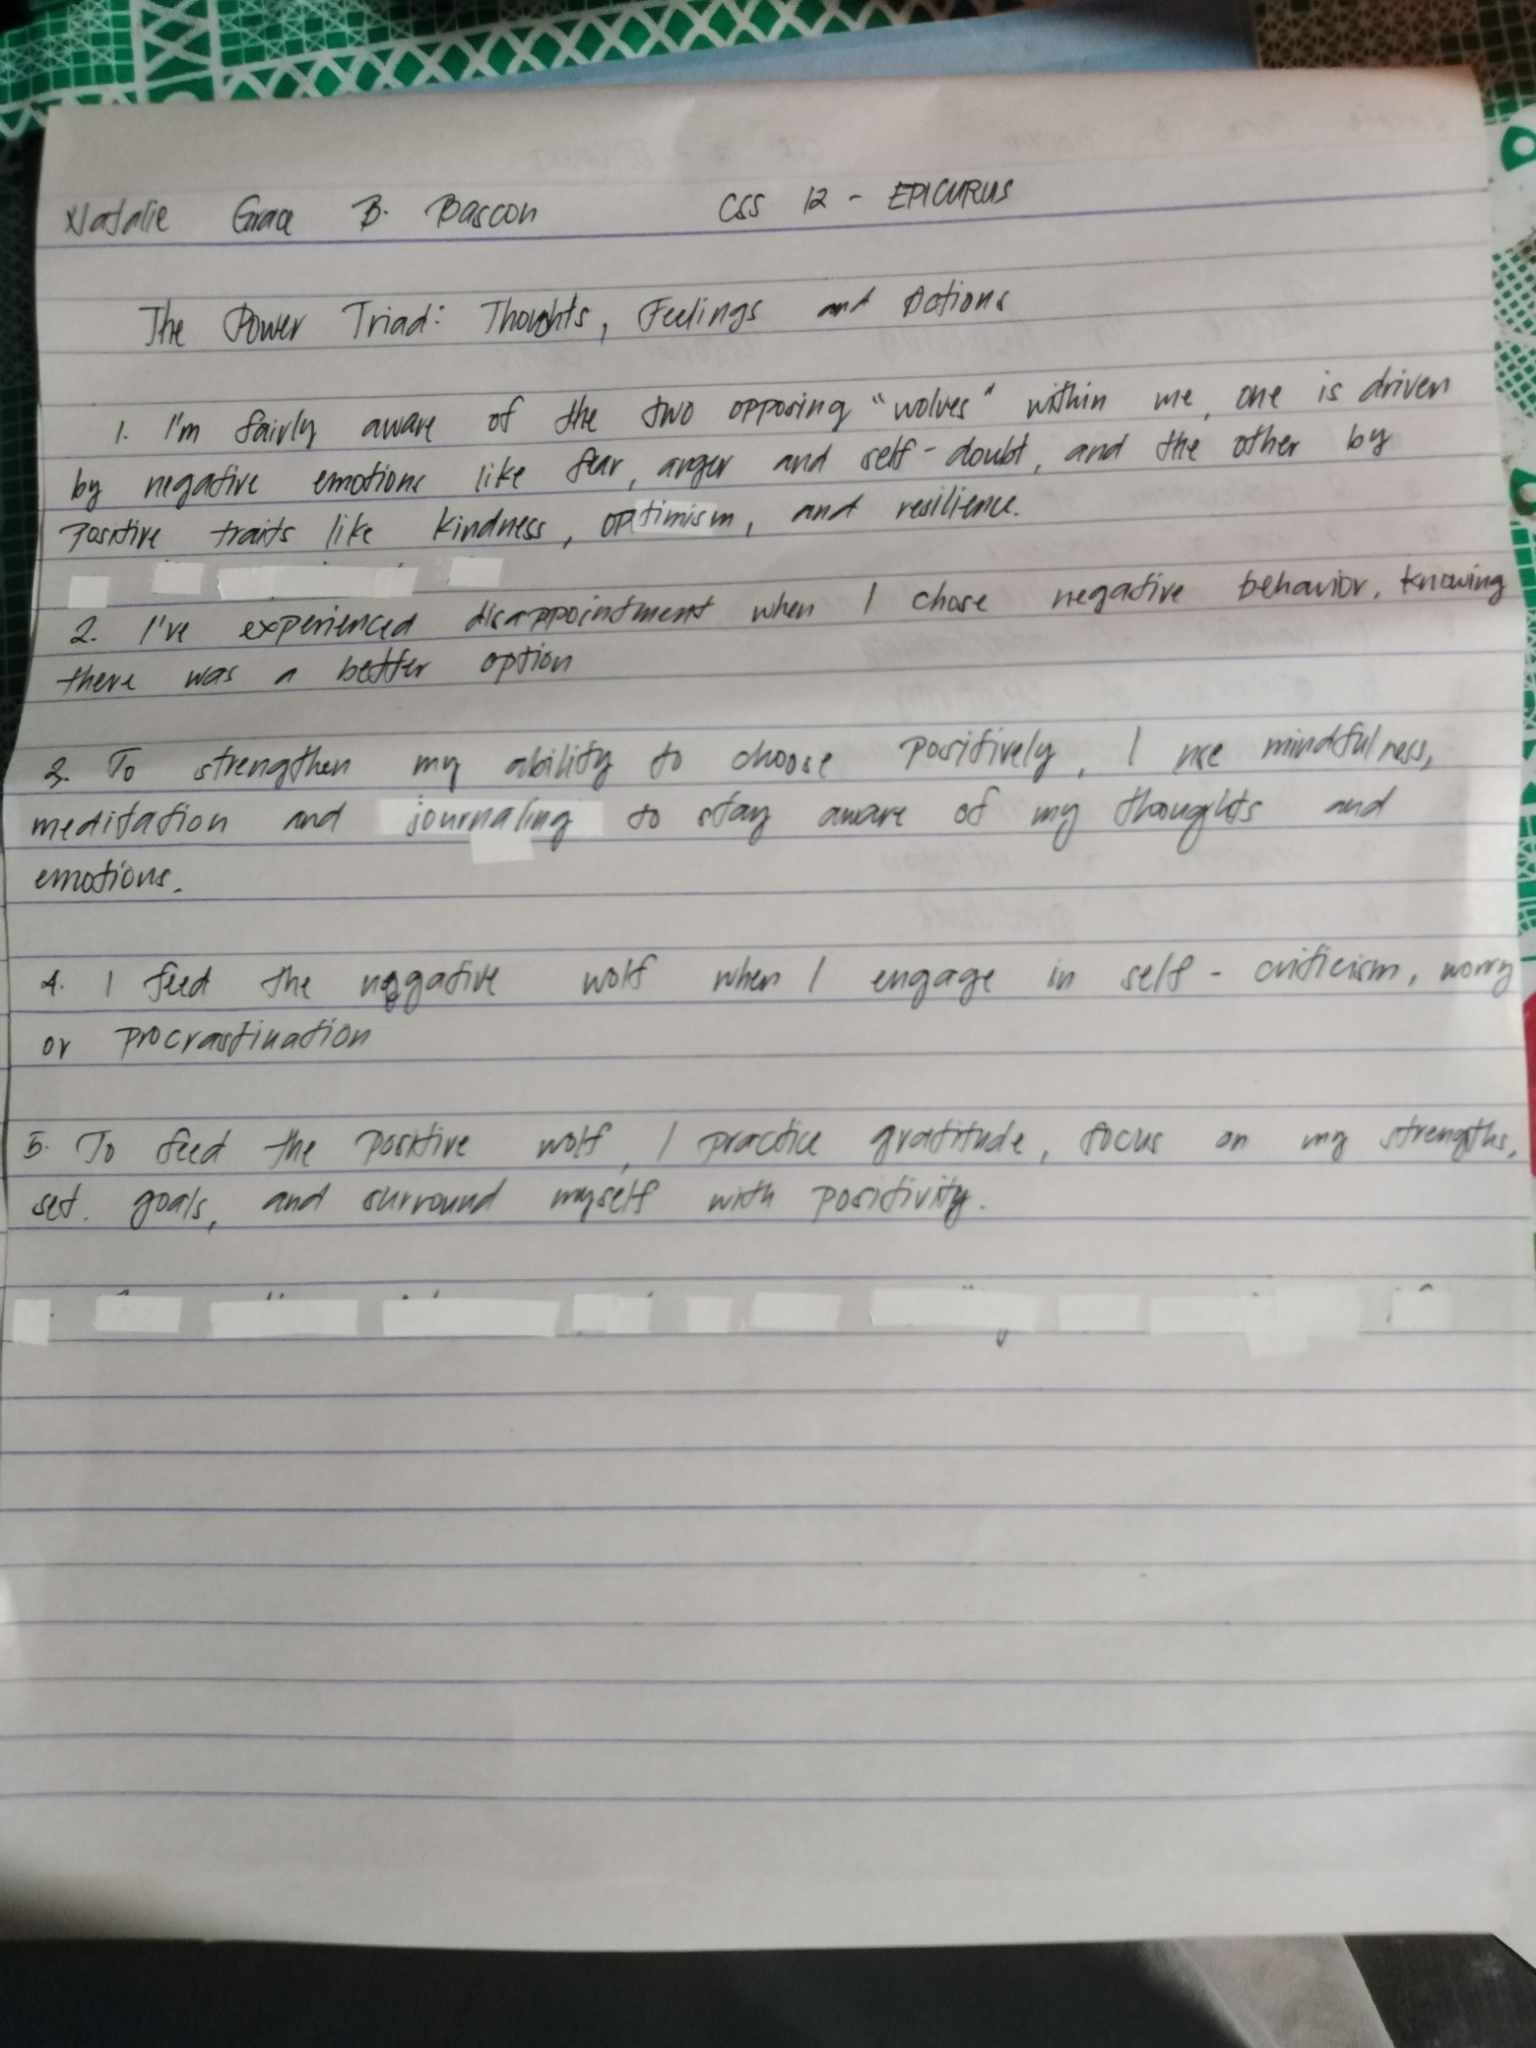 Natalie Grace B. Bascon CSS 12 - EPICURUS
The Power Triad: Thoughts, Feelings and Actions
1. I'm fairly aware of the two opposing "wolves" within me, one is driven
by negative emotions like fear, anger and self-doubt, and the other by
positive traits like kindness, optimism, and resilience.
2. I've experienced disappointment when I chose negative behavior, knowing
there was a better option
3. To strengthen my ability to choose positively, I use mindfulness,
meditation and journaling to stay aware of my thoughts and
emotions.
4. I feed the negative wolf when I engage in self-criticism, worry
or procrastination
5. To feed the positive wolf, I practice gratitude, focus on my strengths,
set. goals, and surround myself with positivity.